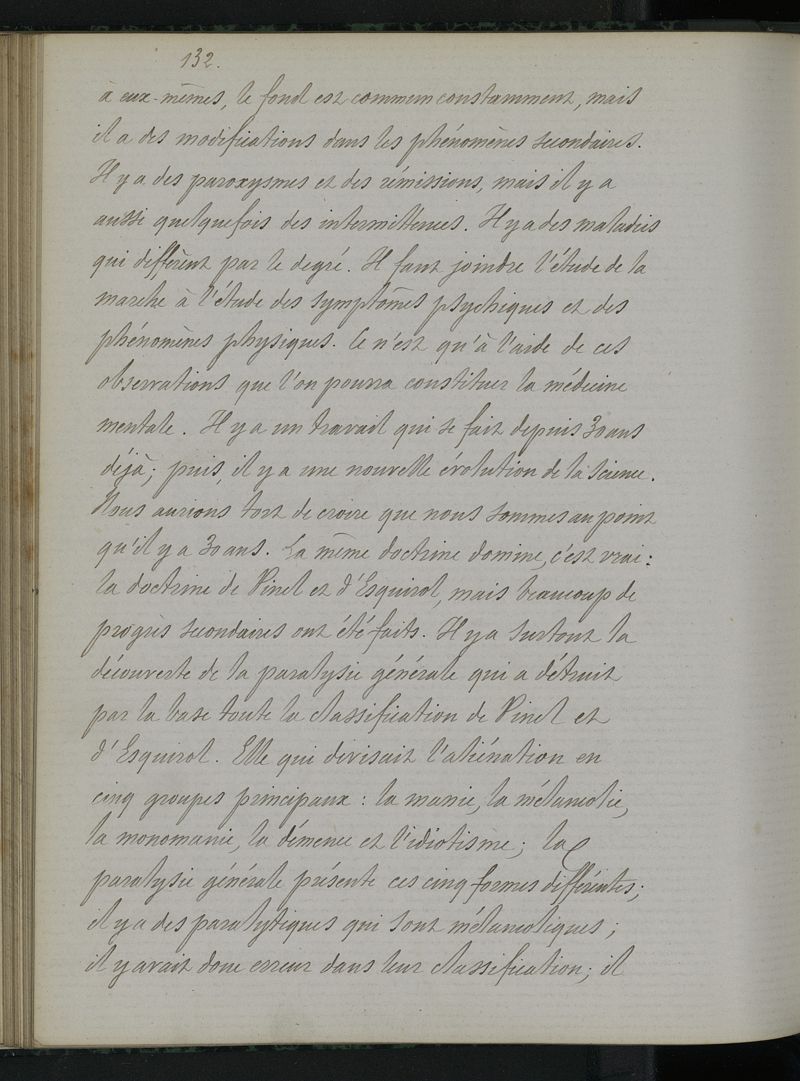 132.
à eux-mêmes, le fond est commun constamment, mais
il a des modifications dans les phénomènes secondaires.
Il y a des paroxysmes et des rémissions, mais il y a
aussi quelquefois des intermittences. Il y a des maladies
qui diffèrent par le degré. Il faut joindre l'étude de la
marche à l'étude des symptômes psychiques et des
phénomènes physiques. Ce n'est qu'à l'aide de ces
observations que l'on pourra constituer la médecine
mentale. Il y a un travail qui se fait depuis 30 ans
déjà; puis, il y a une nouvelle évolution de la science.
Nous aurions tort de croire que nous sommes au point
qu'il y a 30 ans. La même doctrine domine, c'est vrai:
la doctrine de Pinel et d'Esquirol, mais beaucoup de
progrès secondaires ont été faits. Il y a surtout la
découverte de la paralysie générale qui a détruit
par la base toute la classification de Pinel et
d'Esquirol. Elle qui divisait l'aliénation en
cinq groupes principaux: la manie, la mélancolie,
la monomanie, la démence et l'idiotisme; la
paralysie générale présente ces cinq formes différentes;
il y a des paralytiques qui sont mélancoliques;
il y avait donc erreur dans leur classification; il